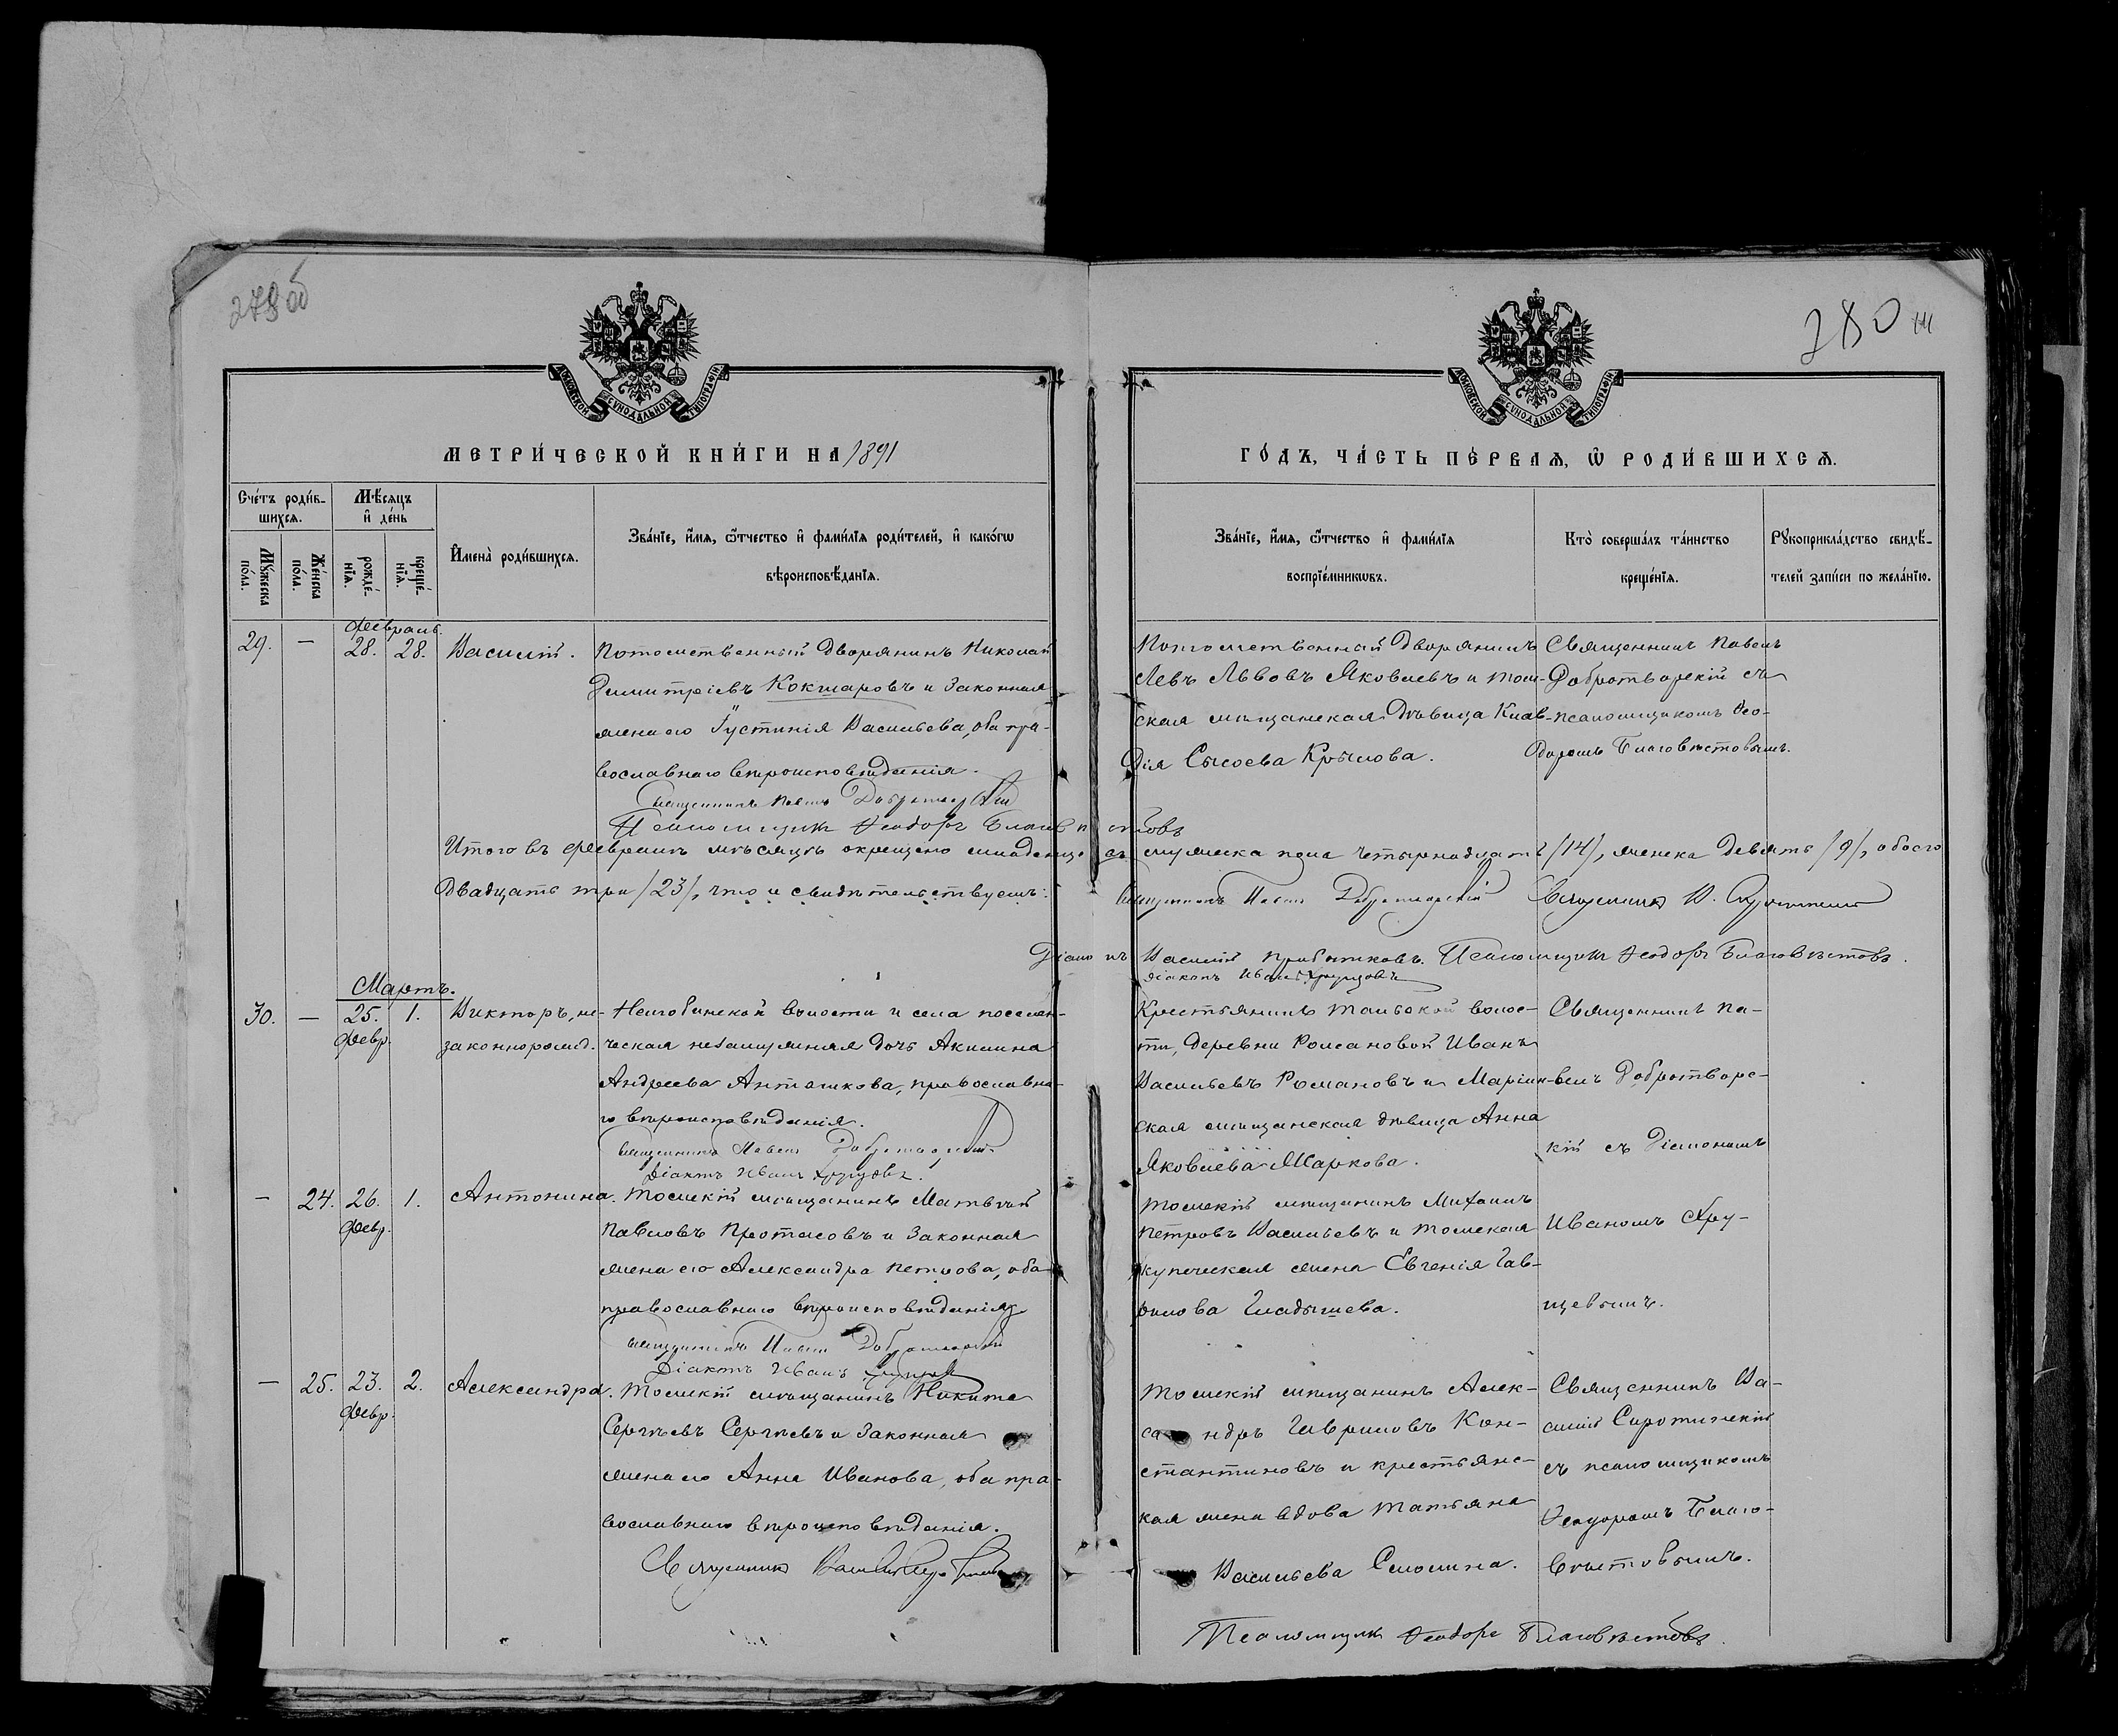 280
МОСКОВСКОЙ СУНОДАЛЬНОЙ ТИПОГРАФІИ
МОСКОВСКОЙ СУНОДАЛЬНОЙ ТИПОГРАФІИ
МЕТРИ́ЧЕСКОЙ КНИ́ГИ НА 1891
ГО́ДЪ, ЧА́СТЬ ПЕ́РВАѦ, Ѡ҆ РОДИ́ВШИХСѦ.
Сче́тъ роди́в-
шихсѧ.
Мꙋ́жеска
по́ла.
Же́нска
по́ла.
Мѣ́сѧцъ
и҆ де́нь
рожде́-
нїѧ.
креще́-
нїѧ.
И҆мена̀ роди́вшихсѧ.
Зва́нїе, и҆́мѧ, ѻ҆́тчество и҆ фами́лїѧ роди́телей, и҆ како́гѡ
вѣроисповѣ́данїѧ.
Зва́нїе, и҆́мѧ, ѻ҆́тчество и҆ фами́лїѧ
воспрїе́мникѡвъ.
Кто̀ соверша́лъ та́инство
креще́нїѧ.
Рꙋкоприкла́дство свидѣ́-
телей за́писи по жела́нїю.
Февраль.
29. — 28. 28. Василій.
Потомственный дворянинъ Николай
Димитріевъ Кокшаровъ и законная
жена его Іустинія Васильева, оба пра-
вославнаго вѣроисповѣданія.
Священникъ Павелъ Добротворскій
Псаломщикъ Ѳеодоръ Благовѣстовъ
Потомственный дворянинъ
Левъ Львовъ Яковлевъ и том-
ская мѣщанская дѣвица Клав-
дія Сысоева Крылова.
Священникъ Павелъ
Добротворскій съ
псаломщикомъ Ѳео-
доромъ Благовѣстовымъ.
Итого въ февралѣ мѣсяцѣ окрещено младенцевъ мужеска пола четырнадцать /14/, женска девять /9/, обоего
двадцать три /23/, что и свидѣтельствуемъ:
Священникъ Павелъ Добротворскій Священникъ В. Сиротинскій
Діаконъ Василій Прибытковъ. Псаломщикъ Ѳеодоръ Благовѣстовъ.
Діаконъ Иванъ Хрущевъ
Мартъ.
30. — 25. 1. Викторъ, не-
Февр. законнорожд.
Нелюбинской волости и села поселен-
ческая незамужняя дочь Акилина
Андреева Анташкова, православна-
го вѣроисповѣданія.
Священникъ Павелъ Добротворскій
Діаконъ Иванъ Хрущевъ.
Крестьянинъ Тальской волос-
ти, деревни Романовой Иванъ
Васильевъ Романовъ и Маріин-
ская мѣщанская дѣвица Анна
Яковлева Маркова.
Священникъ Па-
велъ Добротворс-
кій съ діакономъ
— 24. 26. 1. Антонина.
Февр.
Томскій мѣщанинъ Матвѣй
Павловъ Протасовъ и законная
жена его Александра Петрова, оба
православнаго вѣроисповѣданія
Священникъ Павелъ Добротворскій
Діаконъ Иванъ Хрущевъ
Томскій мѣщанинъ Михаилъ
Петровъ Васильевъ и томская
купеческая жена Евгенія Гав-
рилова Гладышева.
Иваномъ Хру-
щевымъ.
— 25. 23. 2. Александра.
Февр.
Томскій мѣщанинъ Никита
Сергѣевъ Сергѣевъ и законная
жена его Анна Иванова, оба пра-
вославнаго вѣроисповѣданія.
Священникъ Василій Сиротинскій
Томскій мѣщанинъ Алек-
сандръ Гавриловъ Кон-
стантиновъ и крестьянс-
кая жена вдова Татьяна
Васильева Смолина.
Священникъ Ва-
силій Сиротинскій
съ псаломщикомъ
Ѳеодоромъ Благо-
вѣстовымъ.
Псаломщикъ Ѳеодоръ Благовѣстовъ.